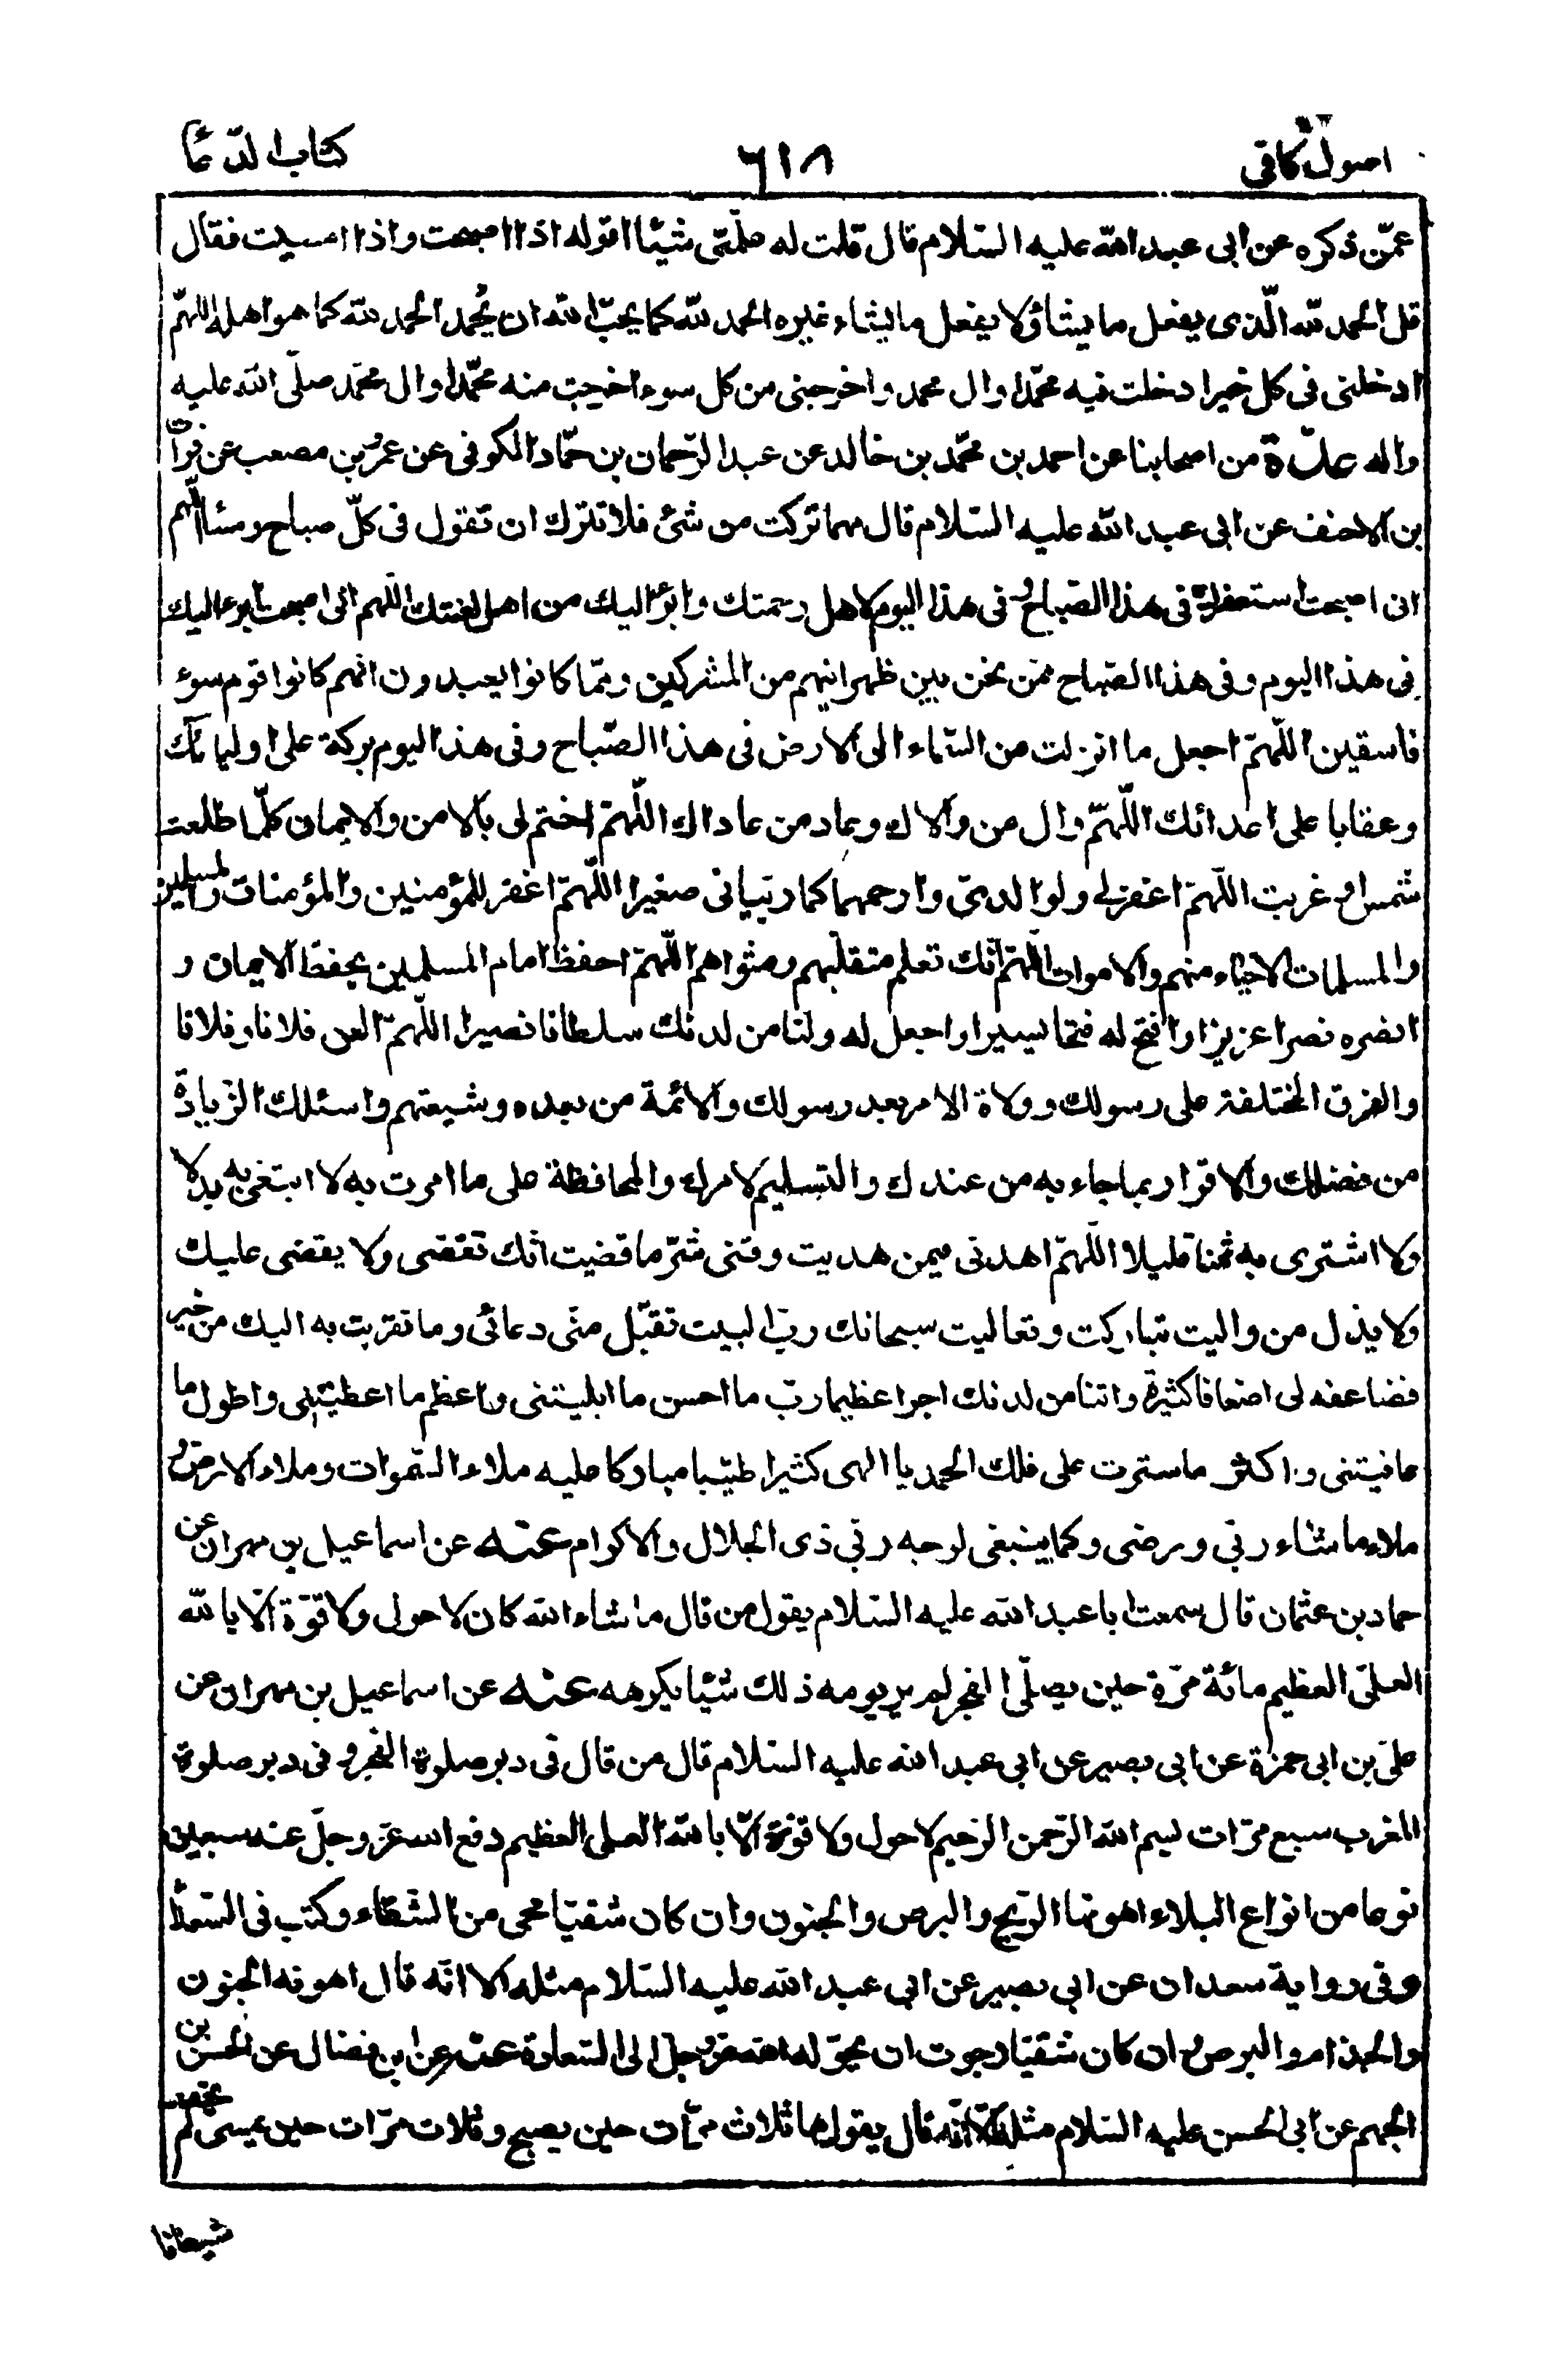 اصول كافى ٦١٨ كتاب الدّعا
عمّن ذكره عن ابى عبد الله عليه السّلام قال قلت له علّمنى شيئا اقوله اذا اصبحت واذا امسيت فقال
قل الحمد لله الّذى يفعل ما يشاؤ ولا يفعل ما يشاء غيره الحمد لله كما يحبّ الله ان يُحمد الحمد لله كما هو اهله اللّهمّ
ادخلنى فى كل خير ادخلت فيه محمّدا وال محمد واخرجنى من كل سوء اخرجت منه محمّدا وال محمّد صلّى الله عليه
واله عدّة من اصحابنا عن احمد بن محمّد بن خالد عن عبد الرّحمان بن حمّاد الكوفى عن عمرو بن مصعب عن فرات
بن الاحنف عن ابى عبد الله عليه السّلام قال مهما تركت من شئ فلا تترك ان تقول فى كلّ صباح ومسا اللّهم
انى اصبحت استغفرك فى هذا الصّباح وفى هذا اليوم لاهل رحمتك وابرء اليك من اهل لعنتك اللّهم انى اصبحت ابرء اليك
فى هذا اليوم وفى هذا الصّباح ممّن نحن بين ظهرانيهم من المشركين وممّا كانوا يعبدون انّهم كانوا قوم سوء
فاسقين اللّهمّ اجعل ما انزلت من السّماء الى الارض فى هذا الصّباح وفى هذا اليوم بركة على اوليائك
وعقابا على اعدائك اللّهمّ وال من والاك وعاد من عاداك اللّهمّ اختم لى بالامن والايمان كلّما طلعت
شمس او غربت اللّهمّ اغفر لى ولوالدىّ وارحمهما كما ربّيانى صغيرا اللّهمّ اغفر للمؤمنين والمؤمنات والمسلمين
والمسلمات الاحياء منهم والاموات اللّهمّ انّك تعلم متقلّبهم ومثواهم اللّهمّ احفظ امام المسلمين بحفظ الايمان و
انصره نصرا عزيزا وافتح له فتحا يسيرا واجعل له ولنا من لدنك سلطانا نصيرا اللّهمّ العن فلانا وفلانا
والفرق المختلفة على رسولك وولاة الامر بعد رسولك والائمّة من بعده وشيعتهم واسئلك الزّيادة
من فضلك والاقرار بما جاء به من عندك والتسليم لامرك والمحافظة على ما امرت به لا ابتغى به بدلا
ولا اشترى به ثمنا قليلا اللّهمّ اهدنى فيمن هديت وقنى شرّ ما قضيت انّك تقضى ولا يقضى عليك
ولا يذل من واليت تباركت وتعاليت سبحانك ربّ البيت تقبّل منّى دعائى وما تقربت به اليك من خير
فضاعفه لى اضعافا كثيرة واتنا من لدنك اجرا عظيما ربّ ما احسن ما ابليتنى واعظم ما اعطيتنى واطول ما
عافيتنى واكثر ما سترت على فلك الحمد يا الهى كثيرا طيّبا مباركا عليه ملاء السّموات وملاء الارض و
ملاء ما شاء ربّى ورضى وكما ينبغى لوجه ربّى ذى الجلال والاكرام عنه عن اسماعيل بن مهران عن
حماد بن عثمان قال سمعت ابا عبد الله عليه السّلام يقول من قال ما شاء الله كان لا حول ولا قوّة الّا بالله
العلىّ العظيم مائة مرّة حين يصلّى الفجر لم ير يومه ذلك شيئا يكرهه عنه عن اسماعيل بن مهران عن
علىّ بن ابى حمزة عن ابى بصير عن ابى عبد الله عليه السّلام قال من قال فى دبر صلوة الفجر وفى دبر صلوة
المغرب سبع مرّات بسم الله الرّحمن الرّحيم لا حول ولا قوّة الّا بالله العلى العظيم دفع الله عزّ وجلّ عنه سبعين
نوعا من انواع البلاء اهونها الرّيح والبرص والجنون وان كان شقيّا محى من الشّقاء وكتب فى السّعداء
وفى رواية سعدان عن ابى بصير عن ابى عبد الله عليه السّلام مثله الا انّه قال اهونه الجنون
والجذام والبرص وان كان شقيّا رجوت ان يحوّله الله عزّ وجلّ الى السّعادة عنه عن ابن فضال عن الحسن بن
الجهم عن ابى الحسن عليه السّلام مثله الّا انّه قال يقولها ثلاث مرّات حين يصبح وثلاث مرّات حين يمسى لم يخف
شيطانا